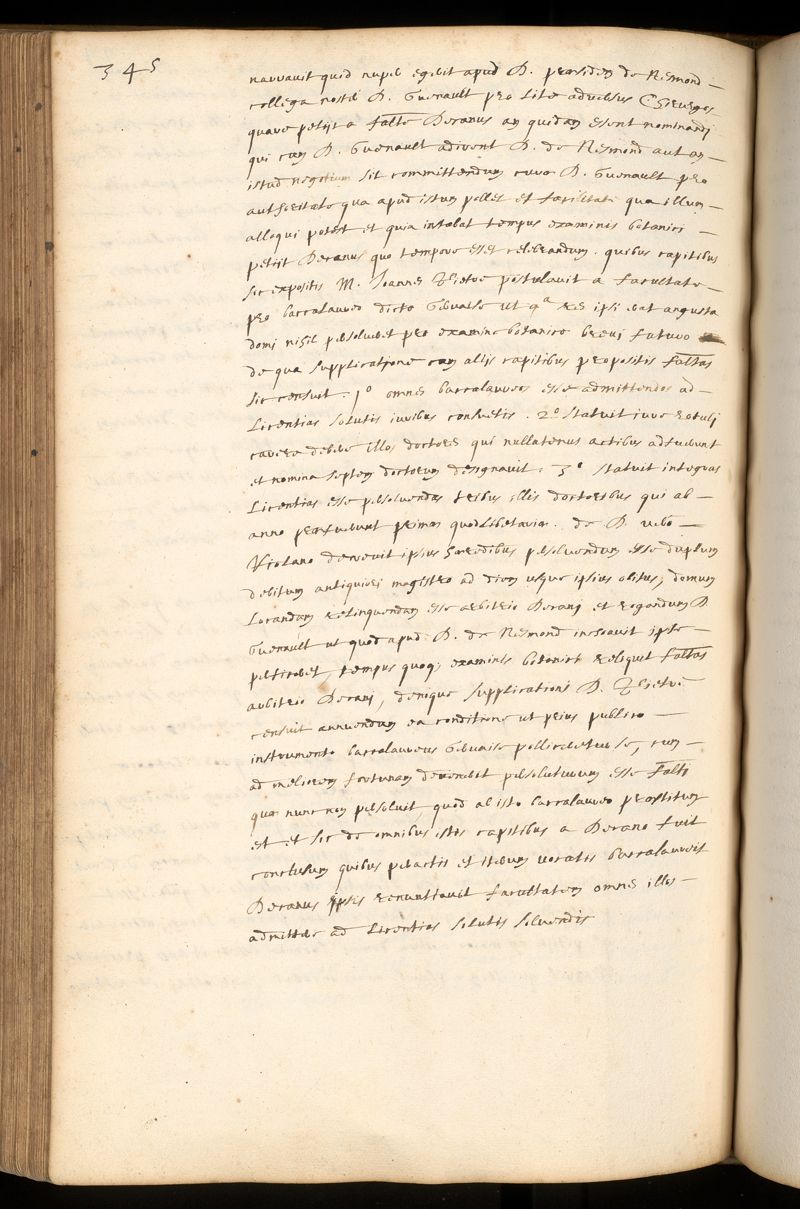 345
narravit quid nuper egerit apud D. præsidem de Nesmond
collega noster D. Guenault pro lite adversus Chirurgos
quare petijt a faltte Decanus an quidam essent nominandj
qui cum D. Guenault adirent D. de Nesmond aut an
istud negotium sit committendum curæ D. Guenault pro
authoritate qua apud istum pollet et facilitate qua illum
alloqui potest et quia instabat tempus examinis botanici
petijt Decanus quo tempore esset celebrandum. quibus capitibus
sic expositis M. Joannes Pietre postulavit a facultate
pro baccalaureo dicto Gervaise ut qa res ipsi erat angusta
domi nihil persolveret pro examine botanico brevi futuro
de qua supplicatione cum alijs capitibus propositis faltas
sic censuit. 1o omnes baccalaureos esse admittendos ad
Licentias solutis juribus consuetis. 2o statuit jure rotulj
carere debere illos doctores qui nullatenus actibus adfuerunt
et nomina septem doctorum designavit. 3o statuit integras
Licentias esse persolvendas tribus illis doctoribus qui ab
anno præfuerunt primas quodlibetarias. de D. vero
Violano decrevit ipsius hæredibus persolvendum esse duplum
debitum antiquiori magistro ad diem usque ipsius obitus, domum
Locandam relinquendam esse arbitrio Decanj et rogandum D
Guenault ut quod apud D. de Nesmond inchoavit ipse
perficeret, tempus quoq; examinis botanici reliquit faltas
arbitrio Decanj, denique supplicationi D. Pietre
censuit annuendum ea conditione ut prius publico
instrumento baccalaureus Gervaise polliceretur se, cum
ad meliorem fortunam devenerit persoluturum esse falti
quæ nunc non persolvit, quod ab isto baccalaureo præstitum
est et sic de omnibus istis capitibus a Decano fuit
conclusum quibus peractis et iterum vocatis baccalaureis
Decanus ipsis renuntiavit facultatem omnes illos
admittere ad Licentias solutis solvendis